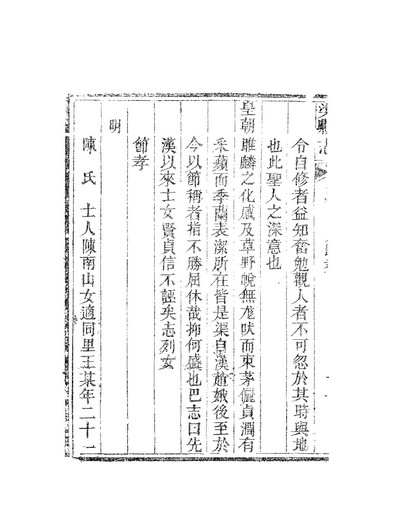 令自修者益知奮勉觀人者不可忽於其時與地
也此聖人之深意也
皇朝雎麟之化感及草野帨無尨吠而束茅儷貞澗有
采蘋而季蘭表潔所在皆是渠自漢趙娥後至於
今以節稱者指不勝屈休哉抑何盛也巴志曰先
漢以來士女賢貞信不誣矣志列女
節孝
明
陳氏 士人陳南山女適同里王某年二十一